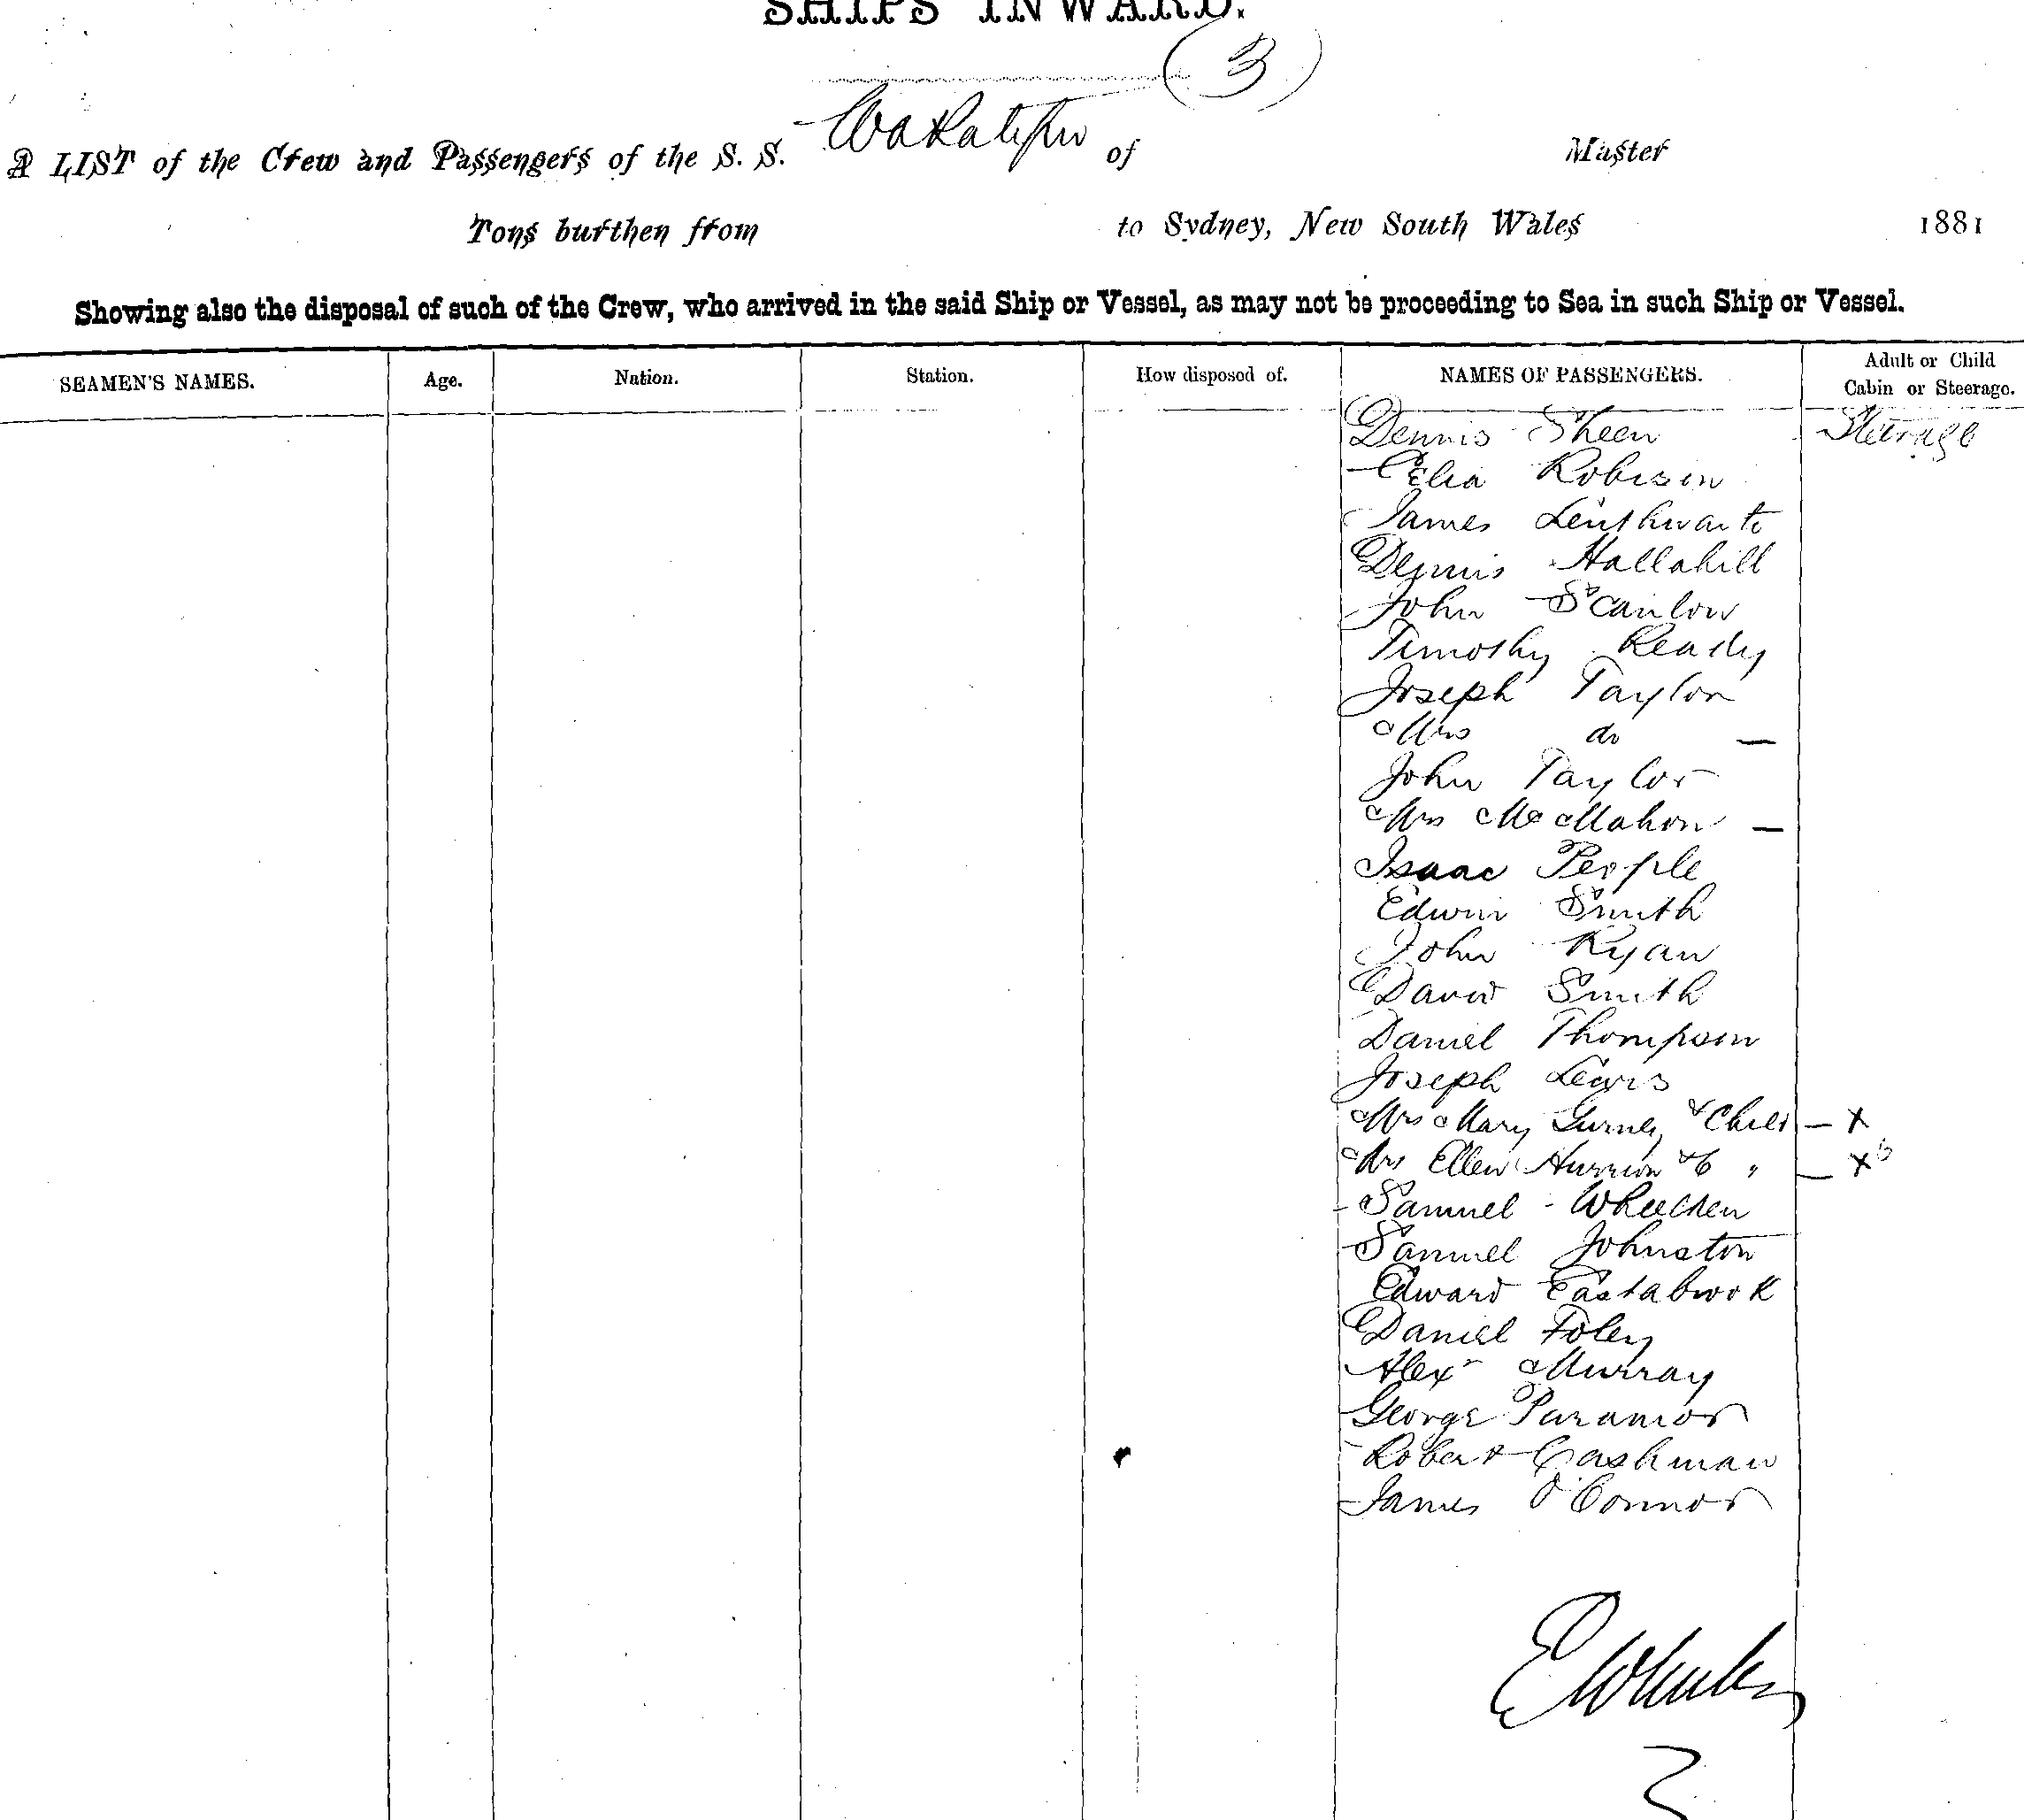 SHIPS INWARD.
3
A LIST of the Crew and Passengers of the S. S. Wakatipu of Master
Tons burthen from to Sydney, New South Wales 1881
Showing also the disposal of such of the Crew, who arrived in the said Ship or Vessel, as may not be proceeding to Sea in such Ship or Vessel.
SEAMEN'S NAMES. Age. Nation. Station. How disposed of. NAMES OF PASSENGERS. Adult or Child Cabin or Steerage.
Dennis Sheen Steerage
Celia Robison
James Leuthwaite
Dennis Hallahill
John Scanlow
Timothy Ready
Joseph Taylor
Mrs do —
John Taylor
Mrs McMahon —
Isaac People
Edwin Smith
John Ryan
David Smith
Daniel Thompson
Joseph Lewis
Mrs Mary Gurney & Child — x
Mrs Ellen & 6 " — x
Samuel
Samuel Johnston
Edward Eastabrook
Daniel Foley
Alexr Murray
George Paramor
Robert Cashman
James O'Connor